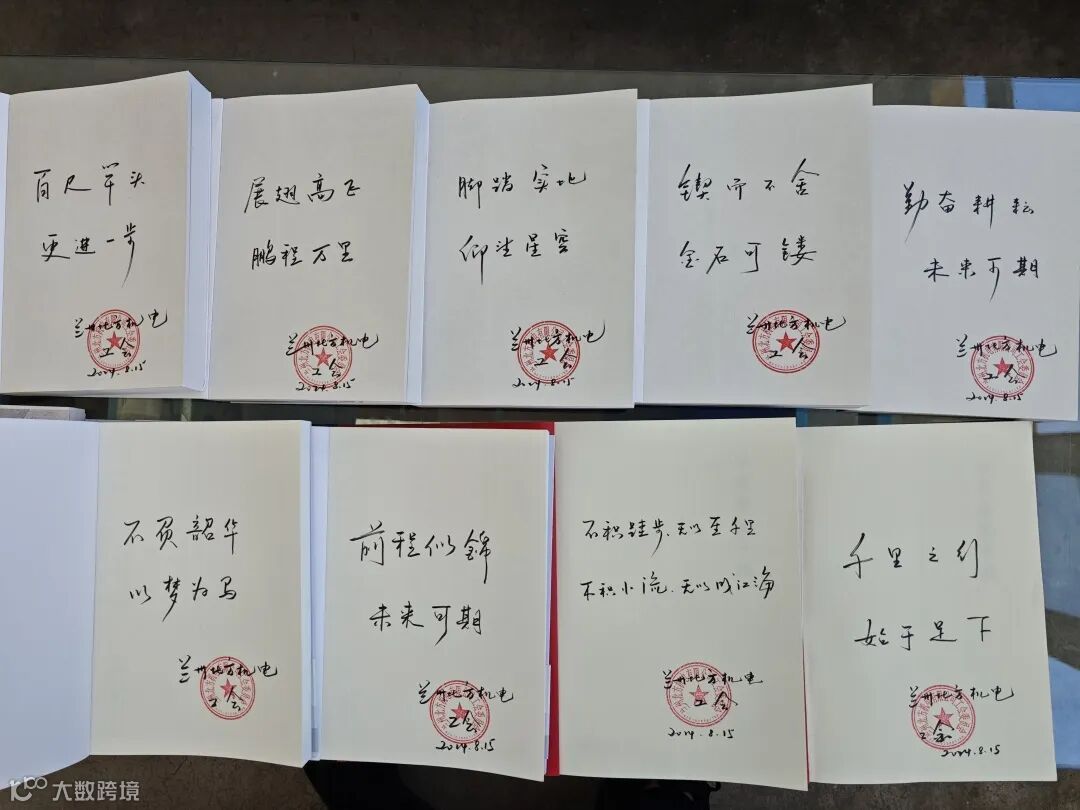 百尺竿头
更进一步
兰州北方机电
工会
2024.8.15
展翅高飞
鹏程万里
兰州北方机电
工会
2024.8.15
脚踏实地
仰望星空
兰州北方机电
工会
2024.8.15
锲而不舍
金石可镂
兰州北方机电
工会
勤奋耕耘
未来可期
兰州北方机电
工会
2024.8.15
不负韶华
以梦为马
兰州北方机电
工会
前程似錦
未来可期
兰州北方机电
工会
2024.8.15
不积跬步、无以至千里
不积小流、无以成江海
兰州北方机电
工会
2024.8.15
千里之行
始于足下
兰州北方机电
工会
2024.8.15
大数跨境